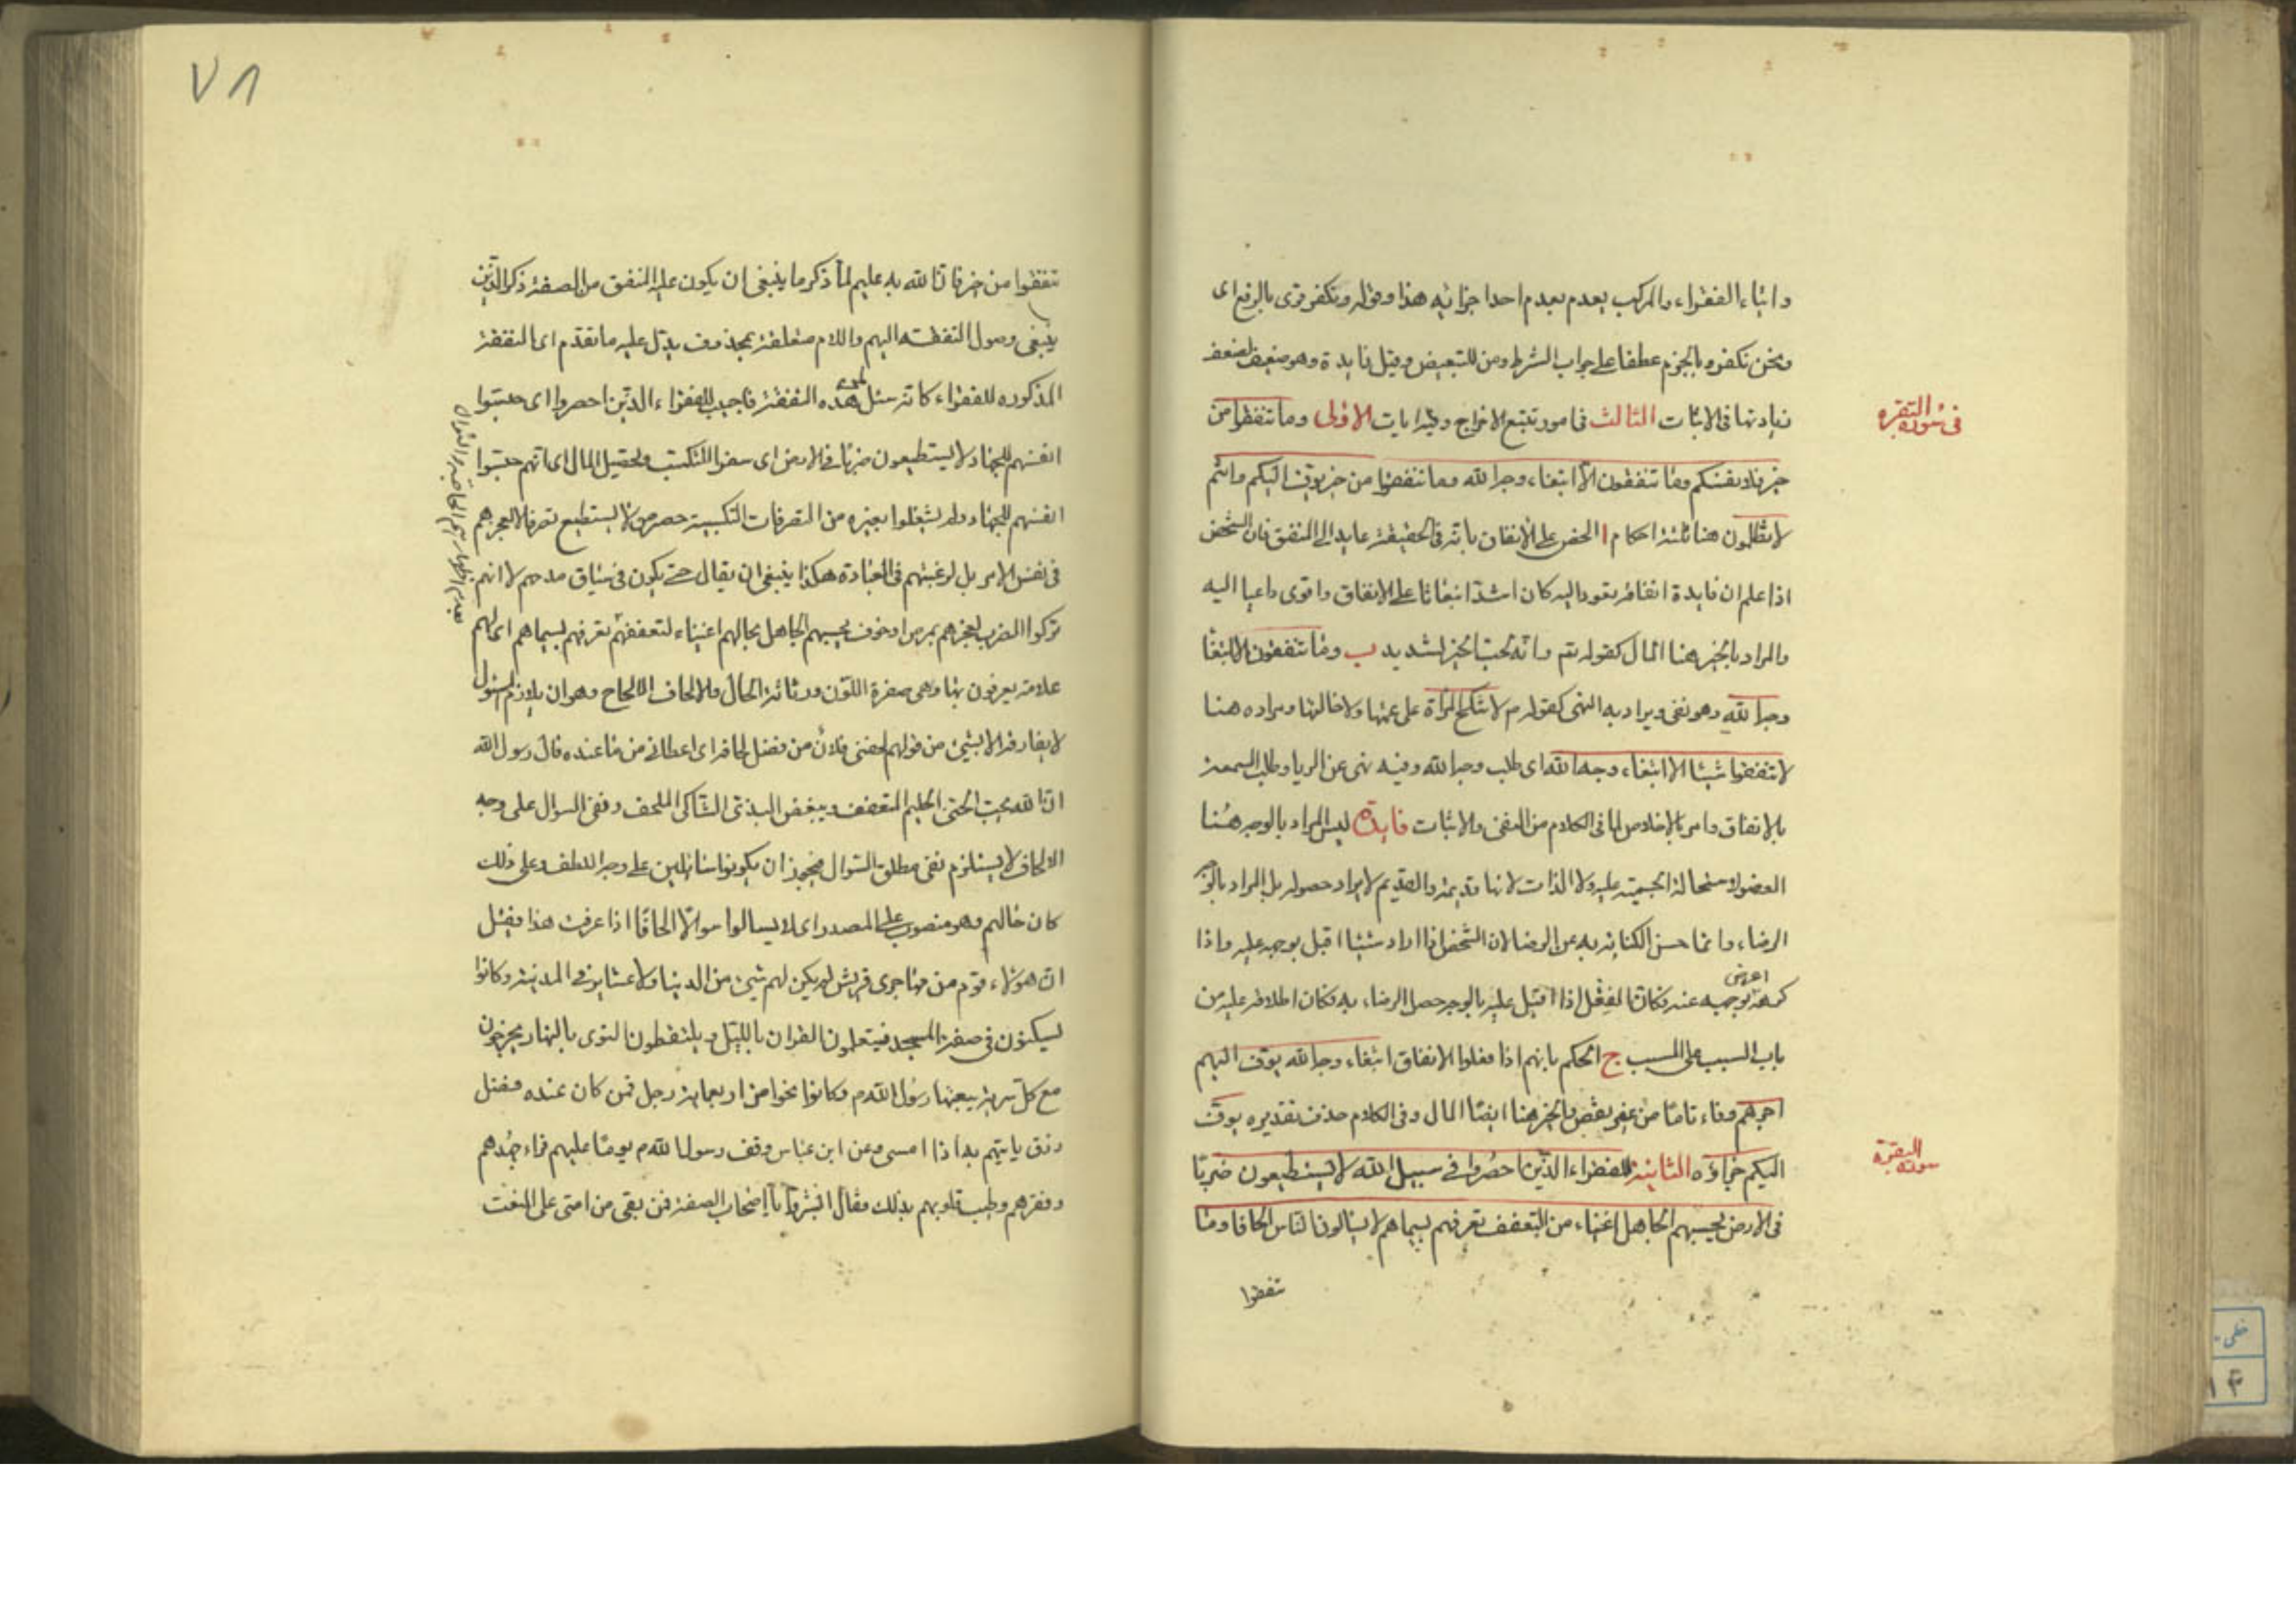 وايتاء الفقراء والمركب يعدم بعدم احد اجزائه هذا وقوله ونكفر قرى بالرفع اى
ونحن نكفر وبالجزم عطفا على جواب الشرط ومن للتبعيض وقيل زايدة وهو ضعيف لضعف
زيادتها فى الاثبات الثالث فى امور تتبع الاخراج وفيه ايات الاولى وما تنفقوا من
فى سورة البقره
خير فلانفسكم وما تنفقون الا ابتغاء وجه الله وما تنفقوا من خير يوف اليكم وانتم
لا تظلمون هنا ثلثة احكام ا الحض على الانفاق بانه فى الحقيقة عايد الى المنفق فان الشخص
اذا علم ان فايدة انفاقه يعود اليه كان اشد انبعاثا على الانفاق واقوى داعيا اليه
والمراد بالخير هنا المال كقوله تعم وانه لحب الخير لشديد ب وما تنفقون الا ابتغا
وجه الله وهو نفى ويراد به النهى كقوله م لا تنكح المراة على عمتها ولا خالتها ومراده هنا
لا تنفقوا شيئا الا ابتغاء وجه الله اى طلب وجه الله وفيه نهى عن الريا وطلب السمعة
بالانفاق وامر بالاخلاص لما فى الكلام من النفى والاثبات فايدة ليس المراد بالوجه هنا
العضو لاستحالة الجسمية عليه ولا الذات لانها قديمة والقديم لا يراد حصوله بل المراد بالوجه
الرضاء وانما حسن الكناية به عن الرضا لان الشخص اذا اراد شيئا اقبل بوجهه عليه واذا
كرهه اعرض بوجهه عنه فكان الفعل اذا اقبل عليه بالوجه حصل الرضاء به فكان اطلاقه عليه من
باب السبب على المسبب ج الحكم بانهم اذا فعلوا الانفاق ابتغاء وجه الله يوف اليهم
اجرهم وفاء تاما من غير نقص والخير هنا ايضا المال وفى الكلام حذف تقديره يوف
اليكم جزاؤه الثانية للفقراء الذين احصروا فى سبيل الله لا يستطيعون ضربا
سورة البقرة
فى الارض يحسبهم الجاهل اغنياء من التعفف تعرفهم بسيماهم لا يسالون الناس الحافا وما
تنفقوا
٧٨
تنفقوا من خير فان الله به عليم لما ذكر ما ينبغى ان يكون عليه المنفق من الصفة ذكر الذين
ينبغى وصول النفقة اليهم واللام متعلقة بمحذوف يدل عليه ما تقدم اى النفقة
المذكوره للفقراء كانه سئل لمن هذه النفقة فاجيب للفقراء الذين احصروا اى حبسوا
انفسهم للجهاد لا يستطيعون ضربا فى الارض اى سفرا للتكسب وتحصيل المال اى انهم حبسوا
انفسهم للجهاد ولم يشغلوا بغيره من التصرفات التكسبية حصر من لا يستطيع تصرفا لا لعجزهم
فى نفس الامر بل لرغبتهم فى العبادة هكذا ينبغى ان يقال حتى يكون فى سياق مدحهم لا انهم
تركوا الضرب لعجزهم بمرض او خوف يحسبهم الجاهل بحالهم اغنياء لتعففهم تعرفهم بسيماهم اى لهم
علامة يعرفون بها وهى صفرة اللون ورثاثة الحال والالحاف الالحاح وهو ان يلازم المسئول
لا يفارقه الا بشئ من قولهم لحفنى فلان من فضل لحافه اى اعطانى من ما عنده قال رسول الله
ان الله يحب الحيى الحليم المتعفف ويبغض البذى الشاكى الملحف ونفى السوال على وجه
الالحاف لا يستلزم نفى مطلق السوال فيجوز ان يكونوا سائلين على وجه اللطف وعلى ذلك
كان حالهم وهو منصوب على المصدر اى لا يسالوا سوالا الحافا اذا عرفت هذا فقيل
ان هولاء قوم من مهاجرى قريش لم يكن لهم شئ من الدنيا ولا عشاير فى المدينة وكانوا
يسكنون فى صفة المسجد فيتعلمون القران بالليل ويلتقطون النوى بالنهار يخرجون
مع كل سرية يبعثها رسول الله م وكانوا نحوا من اربعماية رجل فمن كان عنده فضل
رزق ياتيهم به اذا امسى وعن ابن عباس وقف رسول الله م يوما عليهم فراى جهدهم
وفقرهم وطيب قلوبهم بذلك فقال ابشروا يا اصحاب الصفة فمن بقى من امتى على النعت